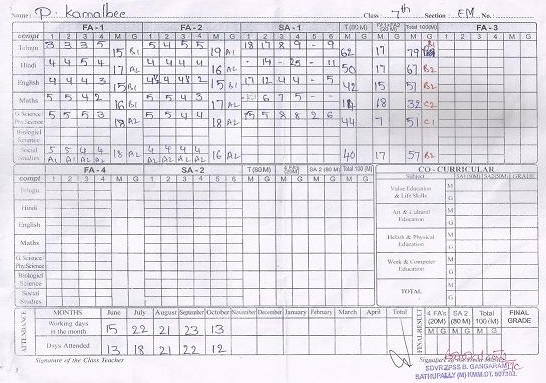 Name: P. Kamalbee Class 7th Section: EM No.:
FA - 1 FA - 2 SA - 1 T(80 M) Total 100(M) FA - 3
compt 1 2 3 4 M G 1 2 3 4 M G 1 2 3 4 5 6 M G M G 1 2 3 4 M G
Telugu 3 3 3 5 15 B1 5 4 5 5 19 A1 18 17 8 9 - 9 62 17 79 B1
Hindi 4 4 5 4 17 A2 4 4 4 4 16 A2 - 14 - 25 - 11 50 17 67 B2
English 4 4 4 3 15 B1 15 B1 17 12 4 4 - 5 42 15 57 B2
Maths 5 5 4 2 16 B1 5 5 4 3 17 A2 6 7 5 - 18 32 C2
G. Science Phy.Science 5 5 5 3 18 A2 5 5 4 4 18 A2 15 5 8 8 2 6 44 7 51 C1
Biological Science
Social Studies 5 5 4 4 18 A2 4 4 4 4 16 A2 40 17 57 B2
A1 A1 A2 A2 A2 A2 A2 A2
FA - 4 SA - 2 T(80M) SA 2 (80 M) Total 100 (M) CO - CURRICULAR
compt 1 2 3 4 M G 1 2 3 4 5 6 M G M G M G M G Subject SA1(50M) SA2(50M) GRADE
Telugu
Value Education & Life Skills M G
Hindi
Art & Cultural Education M G
English
Maths
Helath & Physical Education M G
G. Science Phy.Science
Work & Computer Education M G
Biological Science
Social Studies
TOTAL M G
ATTENDANCE MONTHS June July August September October November December January February March April Total FINAL RESULT 4 FA's (20M) SA 2 (80 M) Total 100 (M) FINAL GRADE
Working days in the month 15 22 21 23 13 M G M G M G
Days Attended 13 18 21 22 12
Signature of the Class Teacher Signature of the
SDVRZPSS B. GANGARAM
SATHUPALLY (M) KMM.DT. 507303.